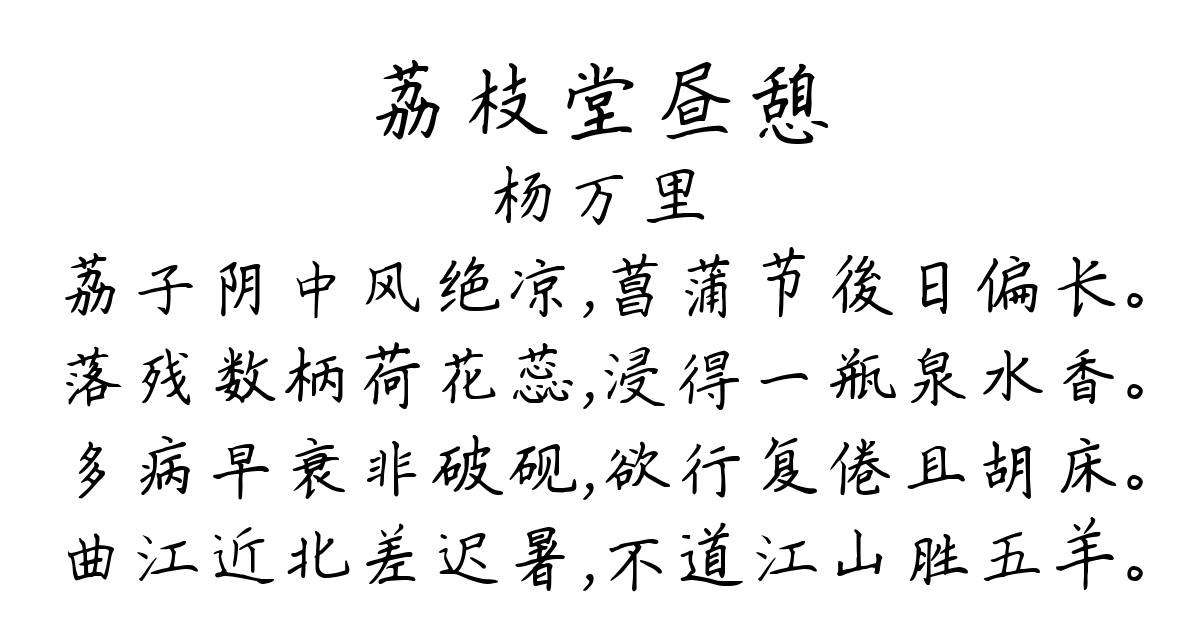 荔枝堂昼憩
杨万里
荔子阴中风绝凉,菖蒲节後日偏长。
落残数柄荷花蕊,浸得一瓶泉水香。
多病早衰非破砚,欲行复倦且胡床。
曲江近北差迟暑,不道江山胜五羊。